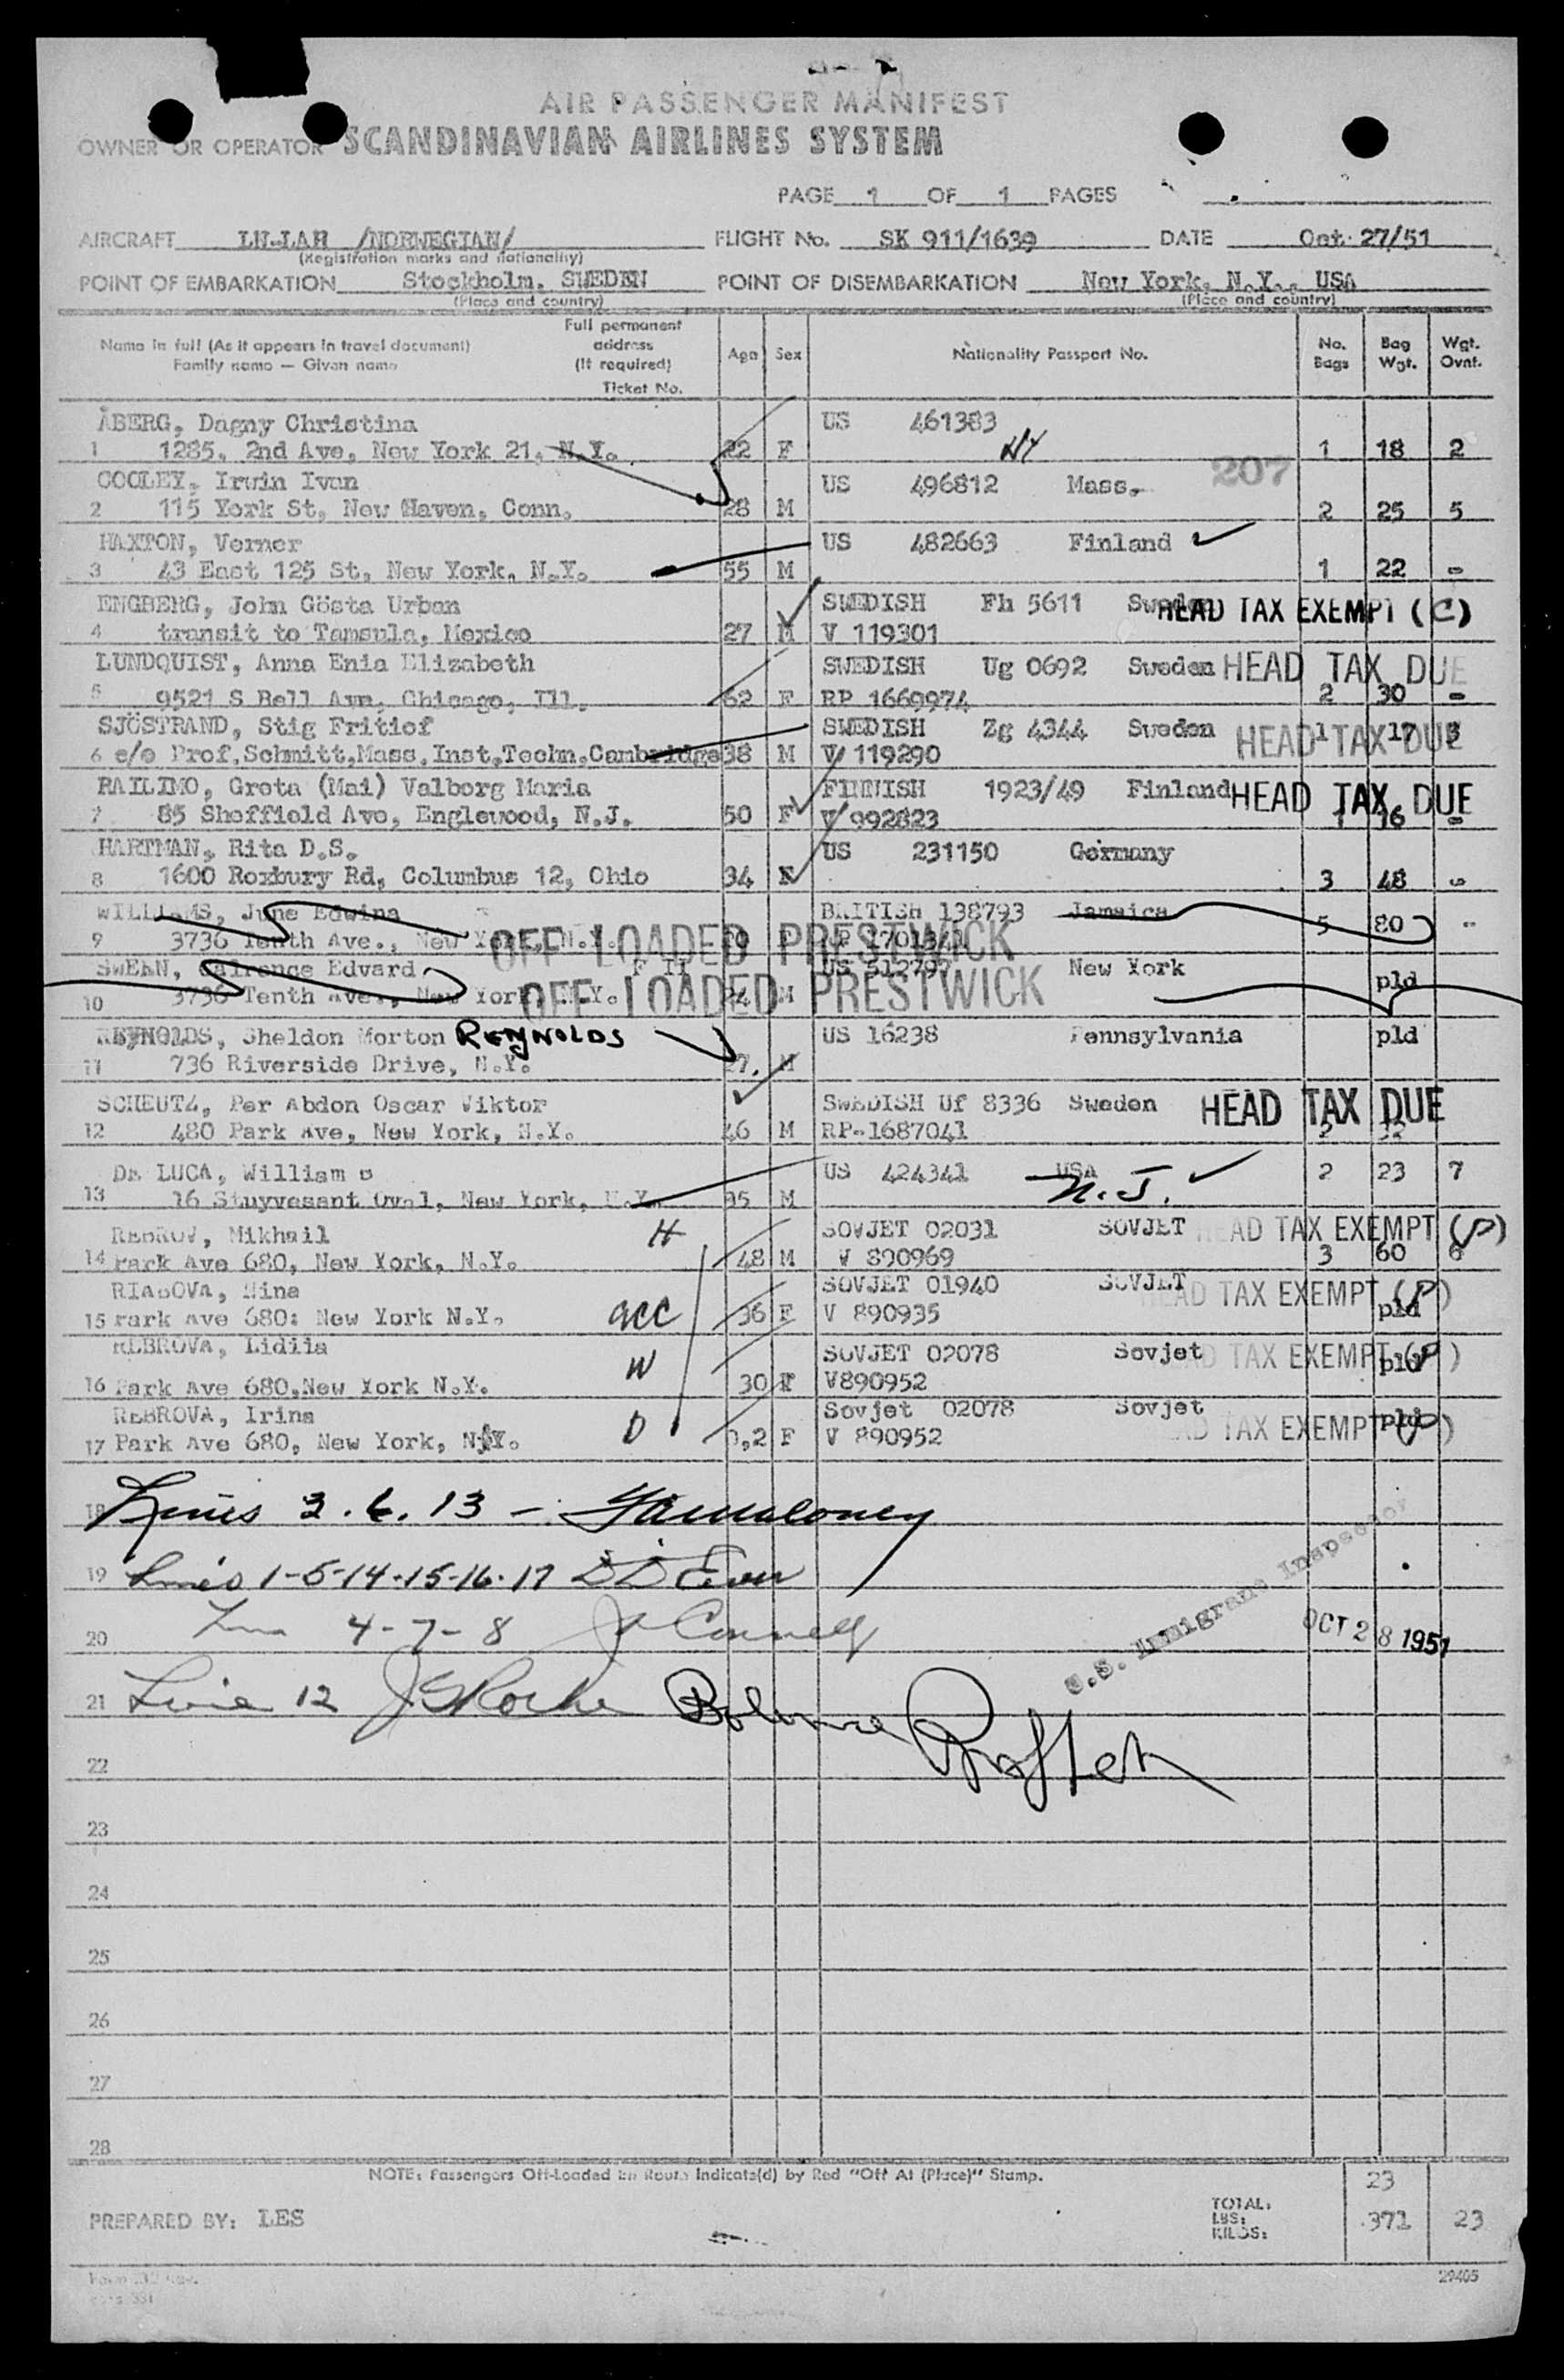 AIR PASSENGER MANIFEST
OWNER OR OPERATOR SCANDINAVIAN AIRLINES SYSTEM
PAGE 1 OF 1 PAGES
AIRCRAFT LN-LAH /NORWEGIAN/ FLIGHT No. SK 911/1639 DATE Oct 27/51
(Registration marks and nationality)
POINT OF EMBARKATION Stockholm, SWEDEN POINT OF DISEMBARKATION New York, N.Y., USA
(Place and country) (Place and country)
Name in full (As it appears in travel document) Family name — Given name Full permanent address (If required) Ticket No. Age Sex Nationality Passport No. No. Bags Bag Wgt. Wgt. Ovnt.
ÅBERG, Dagny Christina US 461383
1 1285, 2nd Ave, New York 21, N.Y. 22 F NY 1 18 2
COOLEY, Irwin Ivan US 496812 Mass. 207
2 115 York St, New Haven, Conn. 28 M 2 25 5
HAXTON, Verner US 482663 Finland
3 43 East 125 St, New York, N.Y. 55 M 1 22 -
ENGBERG, John Gösta Urban SWEDISH Fh 5611 Sweden HEAD TAX EXEMPT (C)
4 transit to Tamsula, Mexico 27 M V 119301
LUNDQUIST, Anna Enia Elizabeth SWEDISH Ug 0692 Sweden HEAD TAX DUE
5 9521 S Bell Ave, Chicago, Ill. 62 F RP 1669974 2 30 -
SJÖSTRAND, Stig Fritiof SWEDISH Zg 4344 Sweden HEAD TAX DUE 1 17 3
6 c/o Prof.Schmitt,Mass.Inst.Techn.Cambridge 38 M V 119290
RAILIMO, Greta (Mai) Valborg Maria FINNISH 1923/49 Finland HEAD TAX DUE
7 85 Sheffield Ave, Englewood, N.J. 50 F V 992823 1 16 -
HARTMAN, Rita D.S. US 231150 Germany
8 1600 Roxbury Rd, Columbus 12, Ohio 34 F 3 48 -
WILLIAMS, June Edwina BRITISH 138793 Jamaica 5 80 -
9 3736 Tenth Ave., New York, N.Y. OFF LOADED PRESTWICK
SWEEN, Edvard US 512797 New York pld
10 3736 Tenth Ave., New York, N.Y. 24 M OFF LOADED PRESTWICK
REYNOLDS, Sheldon Morton REYNOLDS US 16238 Pennsylvania pld
11 736 Riverside Drive, N.Y. 27. M
SCHEUTZ, Per Abdon Oscar Viktor SWEDISH Uf 8336 Sweden HEAD TAX DUE
12 480 Park Ave, New York, N.Y. 46 M RP-1687041 2
DE LUCA, William US 424341 USA N.J. 2 23 7
13 16 Stuyvesant Oval, New York, N.Y. 35 M
REBROV, Mikhail H SOVJET 02031 SOVJET HEAD TAX EXEMPT (P)
14 Park Ave 680, New York, N.Y. 48 M V 890969 3 60 6
RIABOVA, Nina SOVJET 01940 SOVJET HEAD TAX EXEMPT (P)
15 Park Ave 680: New York N.Y. acc 36 F V 890935 pld
REBROVA, Lidiia W SOVJET 02078 Sovjet HEAD TAX EXEMPT (P) pld
16 Park Ave 680,New York N.Y. 30 F V890952
REBROVA, Irina D Sovjet 02078 Sovjet HEAD TAX EXEMPT (P) pld
17 Park Ave 680, New York, N.Y. F V 890952
18 Lines 3. 6. 13 -
19 Lines 1-5-14-15-16-17
20 4-7-8 U.S. Immigrant Inspector OCT 28 1951
21 Line 12
22
23
24
25
26
27
28
NOTE: Passengers Off-Loaded En Route Indicate(d) by Red "Off At (Place)" Stamp. 23
PREPARED BY: LES TOTAL: LBS: KILOS: 371 23
29405